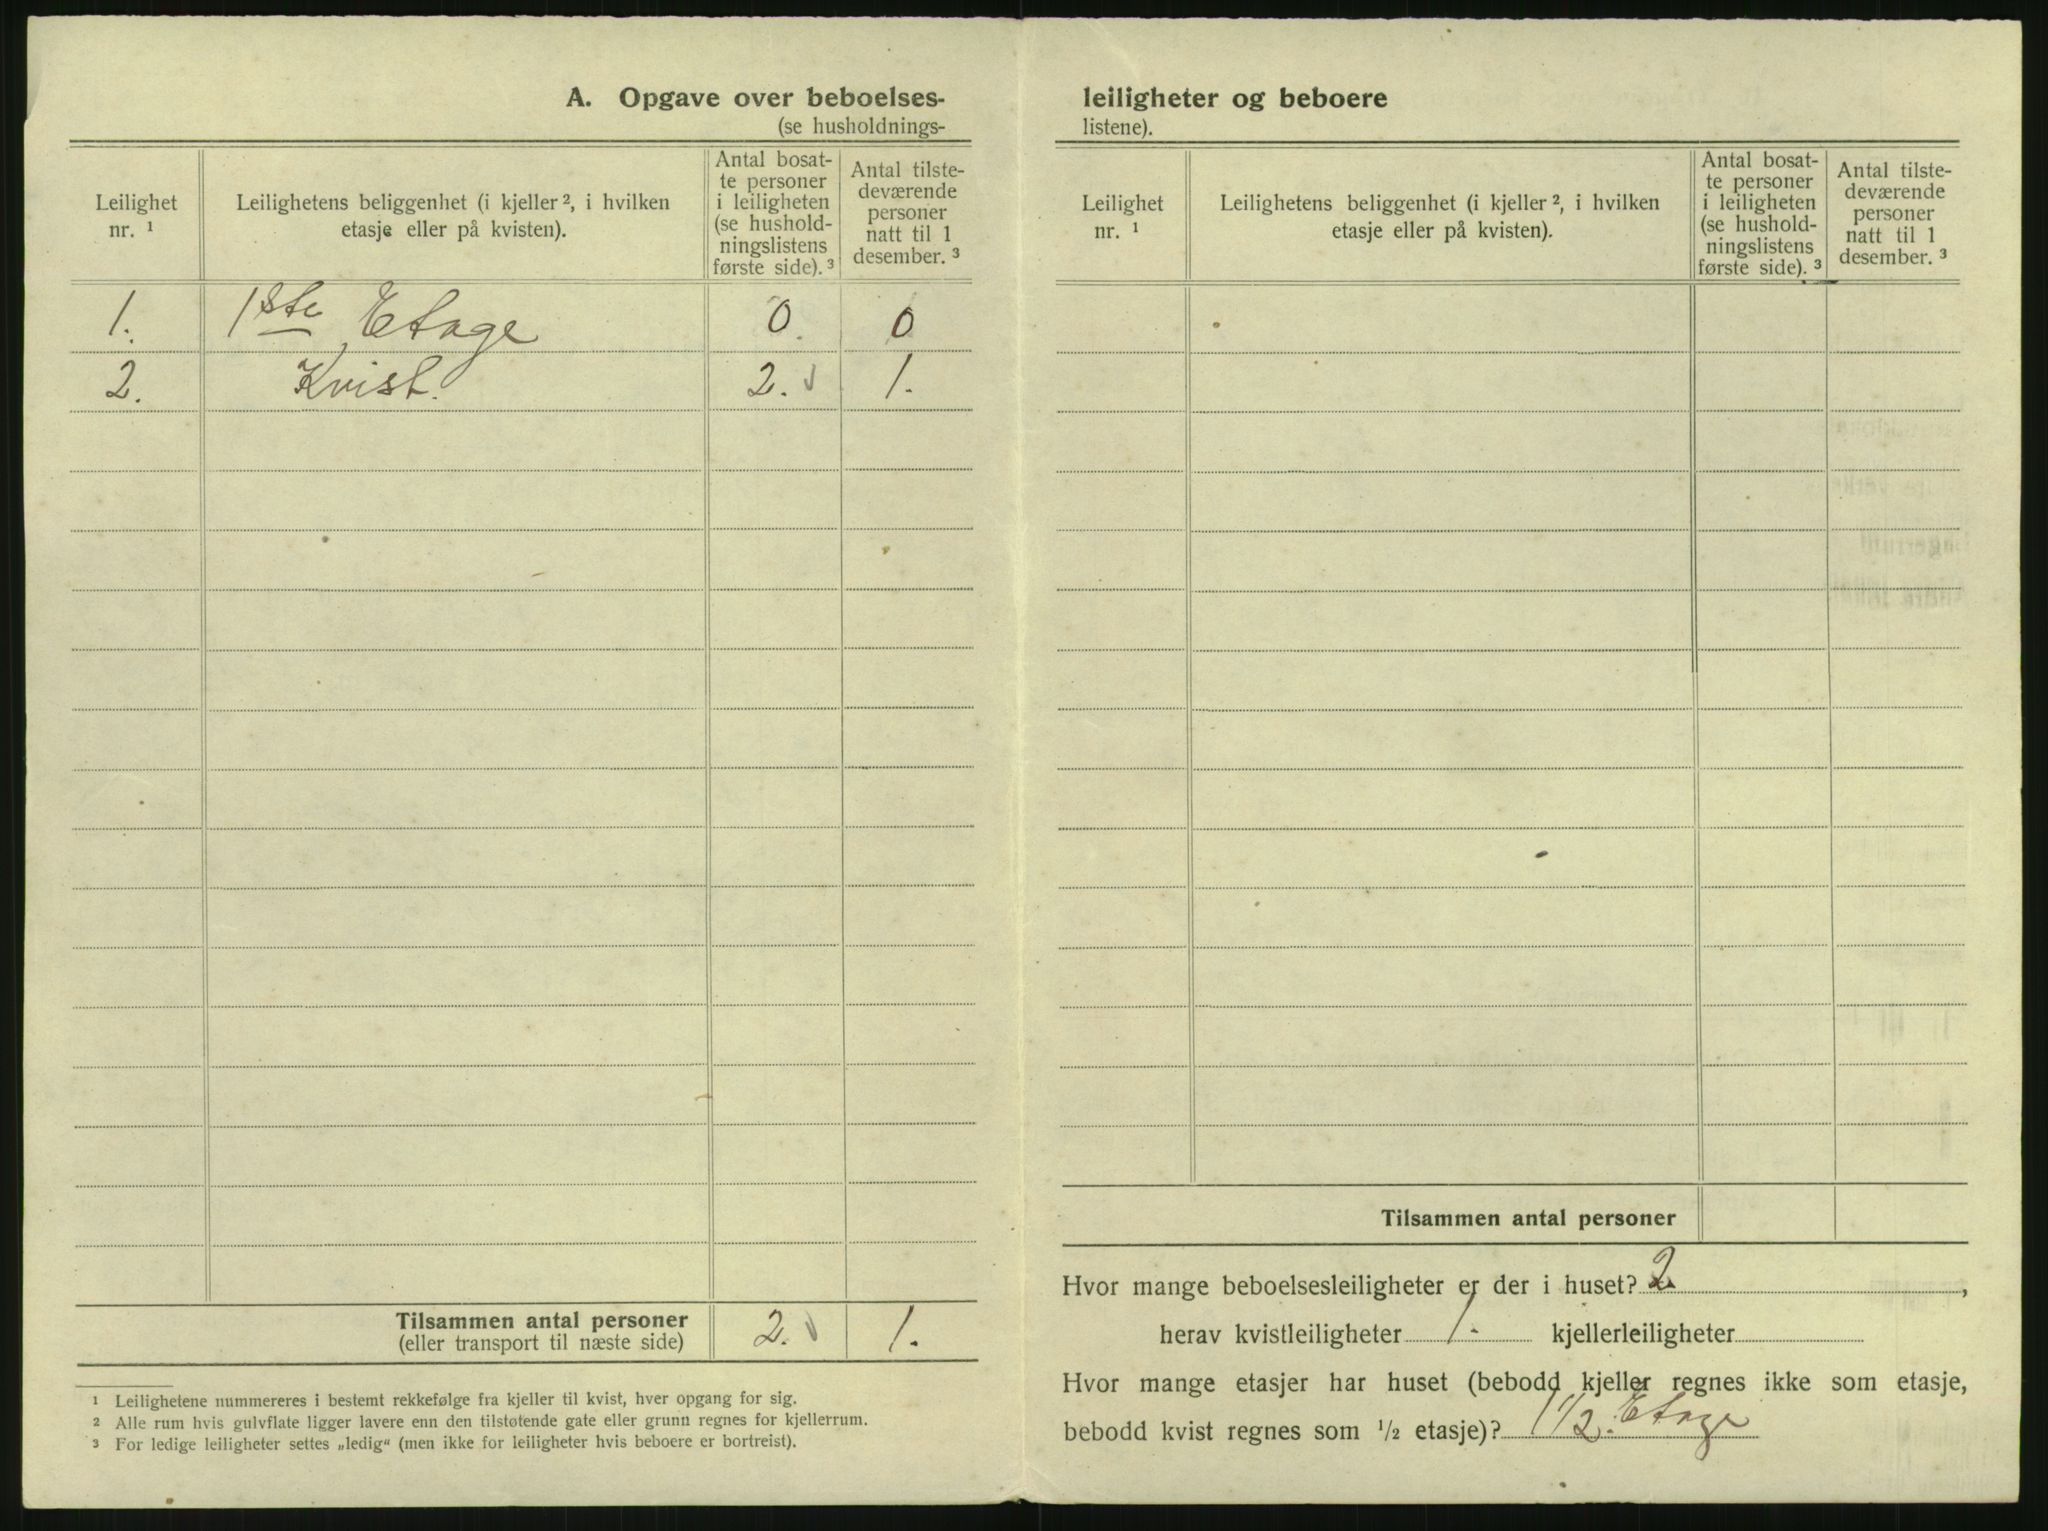 A. Opgave over beboelses-
(se husholdnings-
Leilighet
nr. 1
Leilighetens beliggenhet (i kjeller 2, i hvilken
etasje eller på kvisten).
Antal bosat-
te personer
i leiligheten
(se hushold-
ningslistens
første side). 3
Antal tilste-
deværende
personer
natt til 1
desember. 3
1. 1ste Etage 0. 0
2. Kvist. 2. 1.
Tilsammen antal personer 2. 1.
(eller transport til næste side)
1 Leilighetene nummereres i bestemt rekkefølge fra kjeller til kvist, hver opgang for sig.
2 Alle rum hvis gulvflate ligger lavere enn den tilstøtende gate eller grunn regnes for kjellerrum.
3 For ledige leiligheter settes „ledig“ (men ikke for leiligheter hvis beboere er bortreist).
leiligheter og beboere
listene).
Leilighet
nr. 1
Leilighetens beliggenhet (i kjeller 2, i hvilken
etasje eller på kvisten).
Antal bosat-
te personer
i leiligheten
(se hushold-
ningslistens
første side). 3
Antal tilste-
deværende
personer
natt til 1
desember. 3
Tilsammen antal personer
Hvor mange beboelsesleiligheter er der i huset? 2.,
herav kvistleiligheter 1. kjellerleiligheter
Hvor mange etasjer har huset (bebodd kjeller regnes ikke som etasje,
bebodd kvist regnes som 1/2 etasje)? 1 1/2. Etage